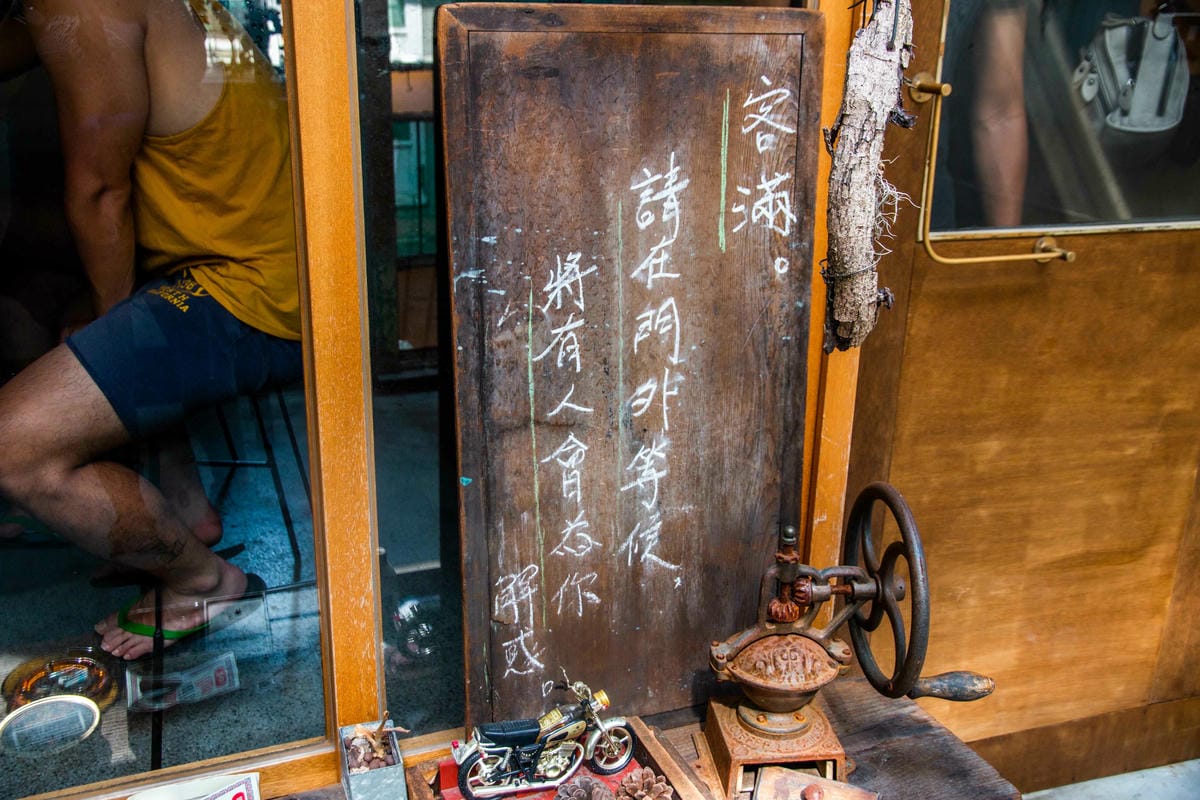 客滿。
請在門外等候，
將有人會為你
解惑。